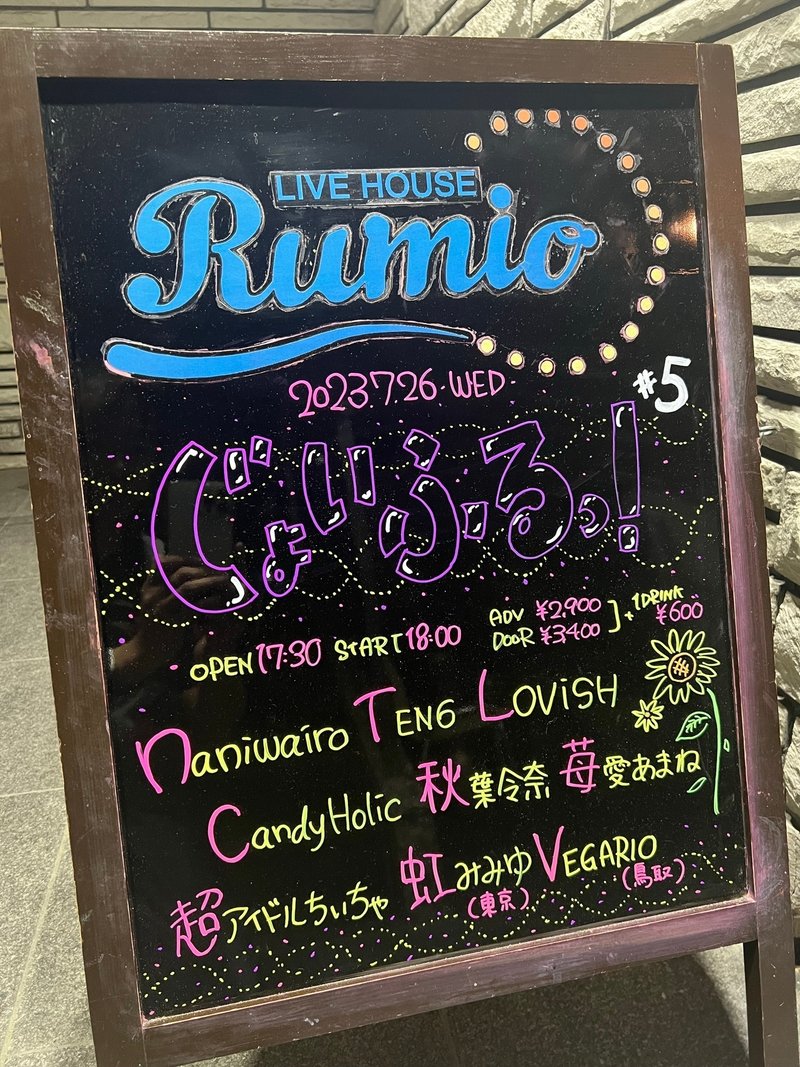 LIVE HOUSE
Rumio
2023.7.26・WED・
#5
じょいふるっ!
OPEN 17:30 START 18:00
ADV ¥2,900
DOOR ¥3,400
+1DRINK ¥600
naniwairo TENG LOViSH
CandyHolic 秋葉令奈 苺愛あまね
超アイドルちぃちゃ 虹みみゆ(東京) VEGARIO(鳥取)